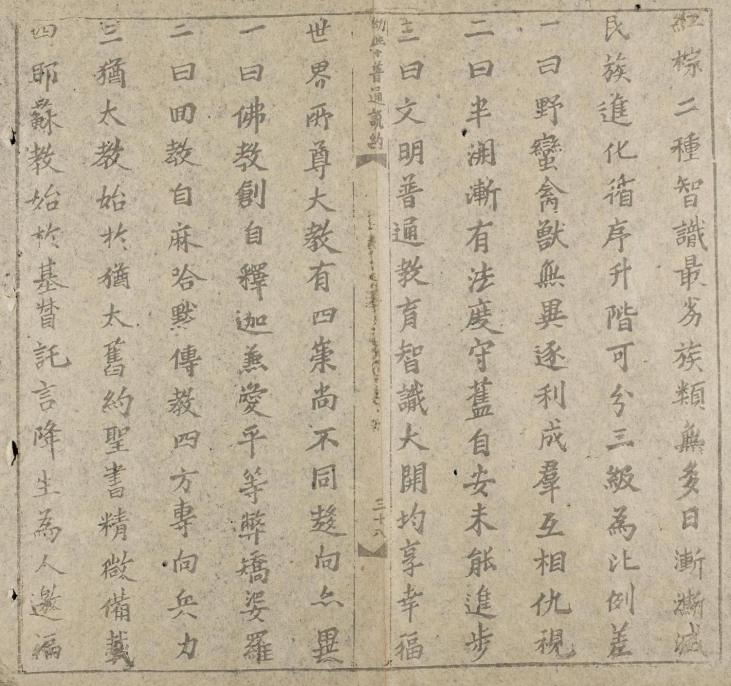 紅棕二種智識最劣族類無多日漸漸滅
民族進化循序升階可分三級為比例差
一曰野蠻禽獸無異逐利成羣互相仇視
二曰半開漸有法度守舊自安未能進步
三曰文明普通教育智識大開均享幸福
幼學普通說約
三十八
世界所尊大教有四崇尚不同趍向亦異
一曰佛教創自釋迦兼愛平等弊矯婆羅
二曰回教自麻哈默傳教四方專向兵力
三猶太教始於猶太舊約聖書精微備載
四耶蘇教始於基督託言降生為人邀福